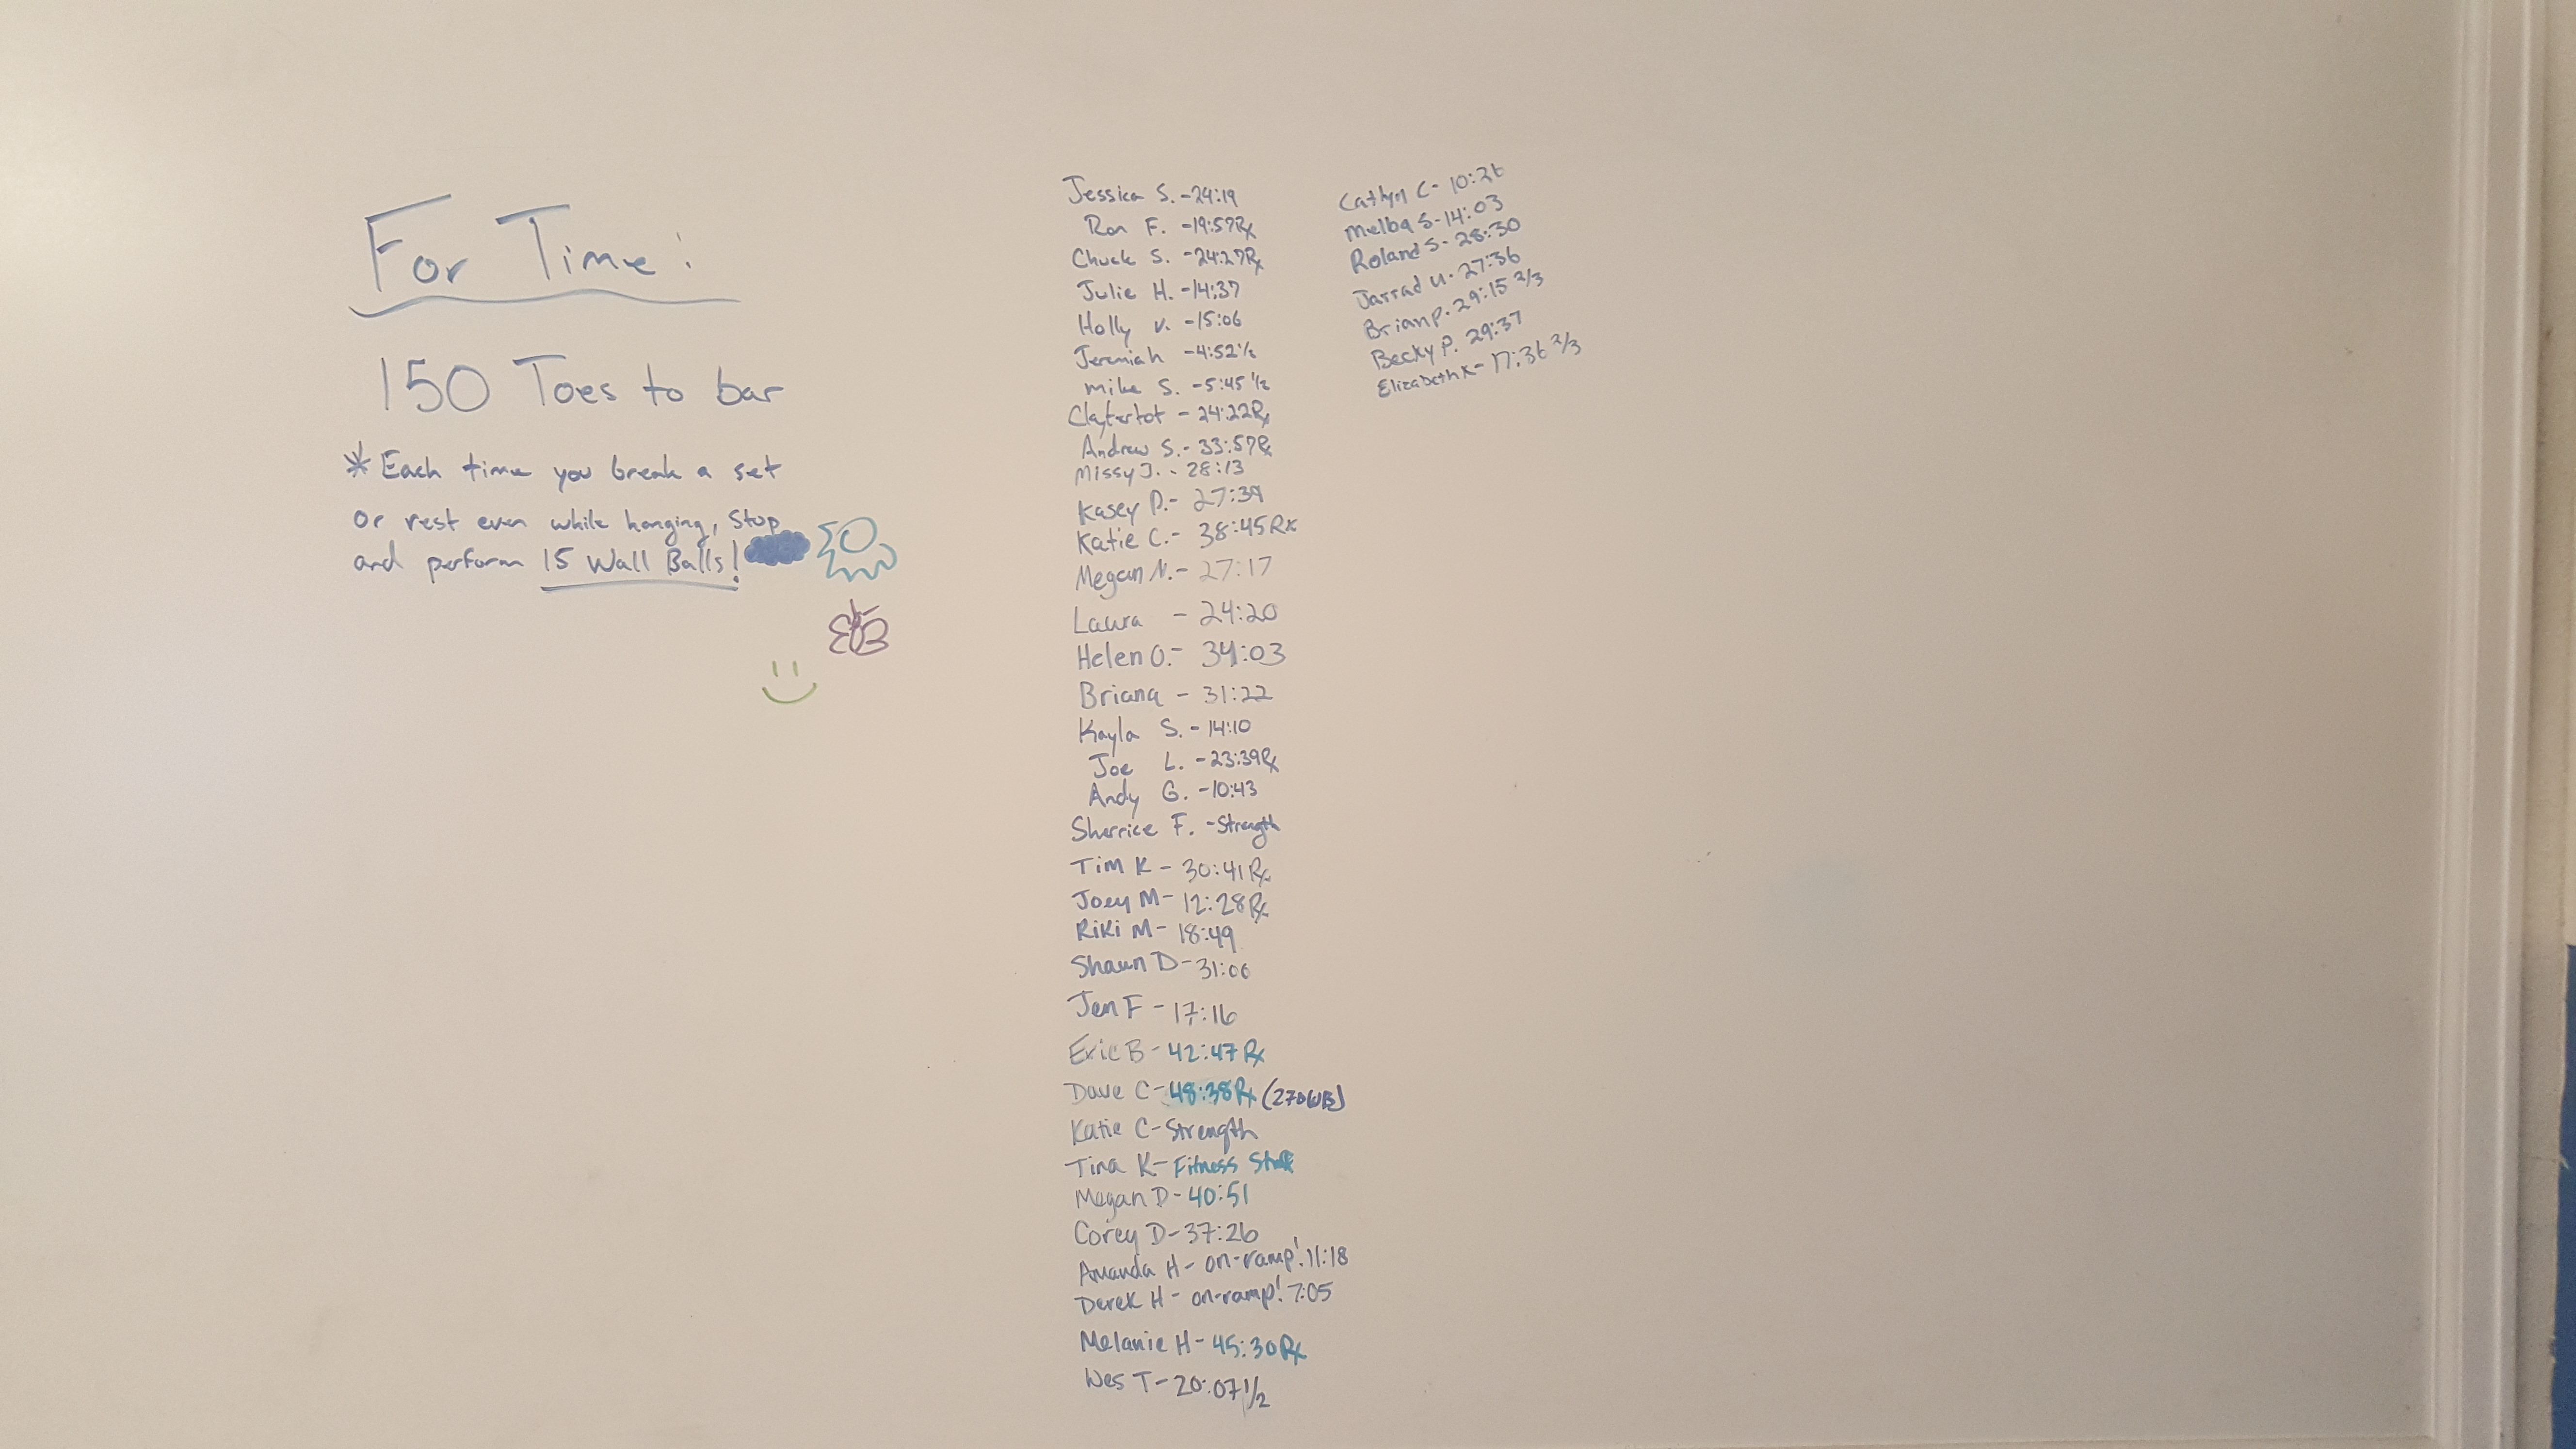 For Time:
150 Toes to bar
* Each time you break a set
or rest even while hanging, stop
and perform 15 Wall Balls!
Jessica S. - 24:19
Ron F. - 19:57Rx
Chuck S. - 24:27Rx
Julie H. - 14:37
Holly V. - 15:06
Jeremiah - 4:52 1/2
Mike S. - 5:45 1/2
Claytertot - 24:22Rx
Andrew S. - 33:57Rx
Missy J. - 28:13
Kasey P. - 27:39
Katie C. - 38:45Rx
Megan N. - 27:17
Laura - 24:20
Helen O. - 34:03
Briana - 31:22
Kayla S. - 14:10
Joe L. - 23:39Rx
Andy G. - 10:43
Sherrice F. - Strength
Tim K - 30:41Rx
Joey M - 12:28Rx
Riki M - 18:49
Shaun D - 31:06
Jen F - 17:16
Eric B - 42:47Rx
Dave C - 48:38Rx (270WB)
Katie C - Strength
Tina K - Fitness
Megan D - 40:51
Corey D - 37:26
Amanda H - on-ramp! 11:18
Derek H - on-ramp! 7:05
Melanie H - 45:30Rx
Wes T - 20:07 1/2
Catlyn C - 10:36
Melba S - 14:03
Roland S - 28:30
Jarrad U. 27:36
Brian P. 29:15 2/3
Becky P. 29:37
Elizabeth K - 17:36 2/3